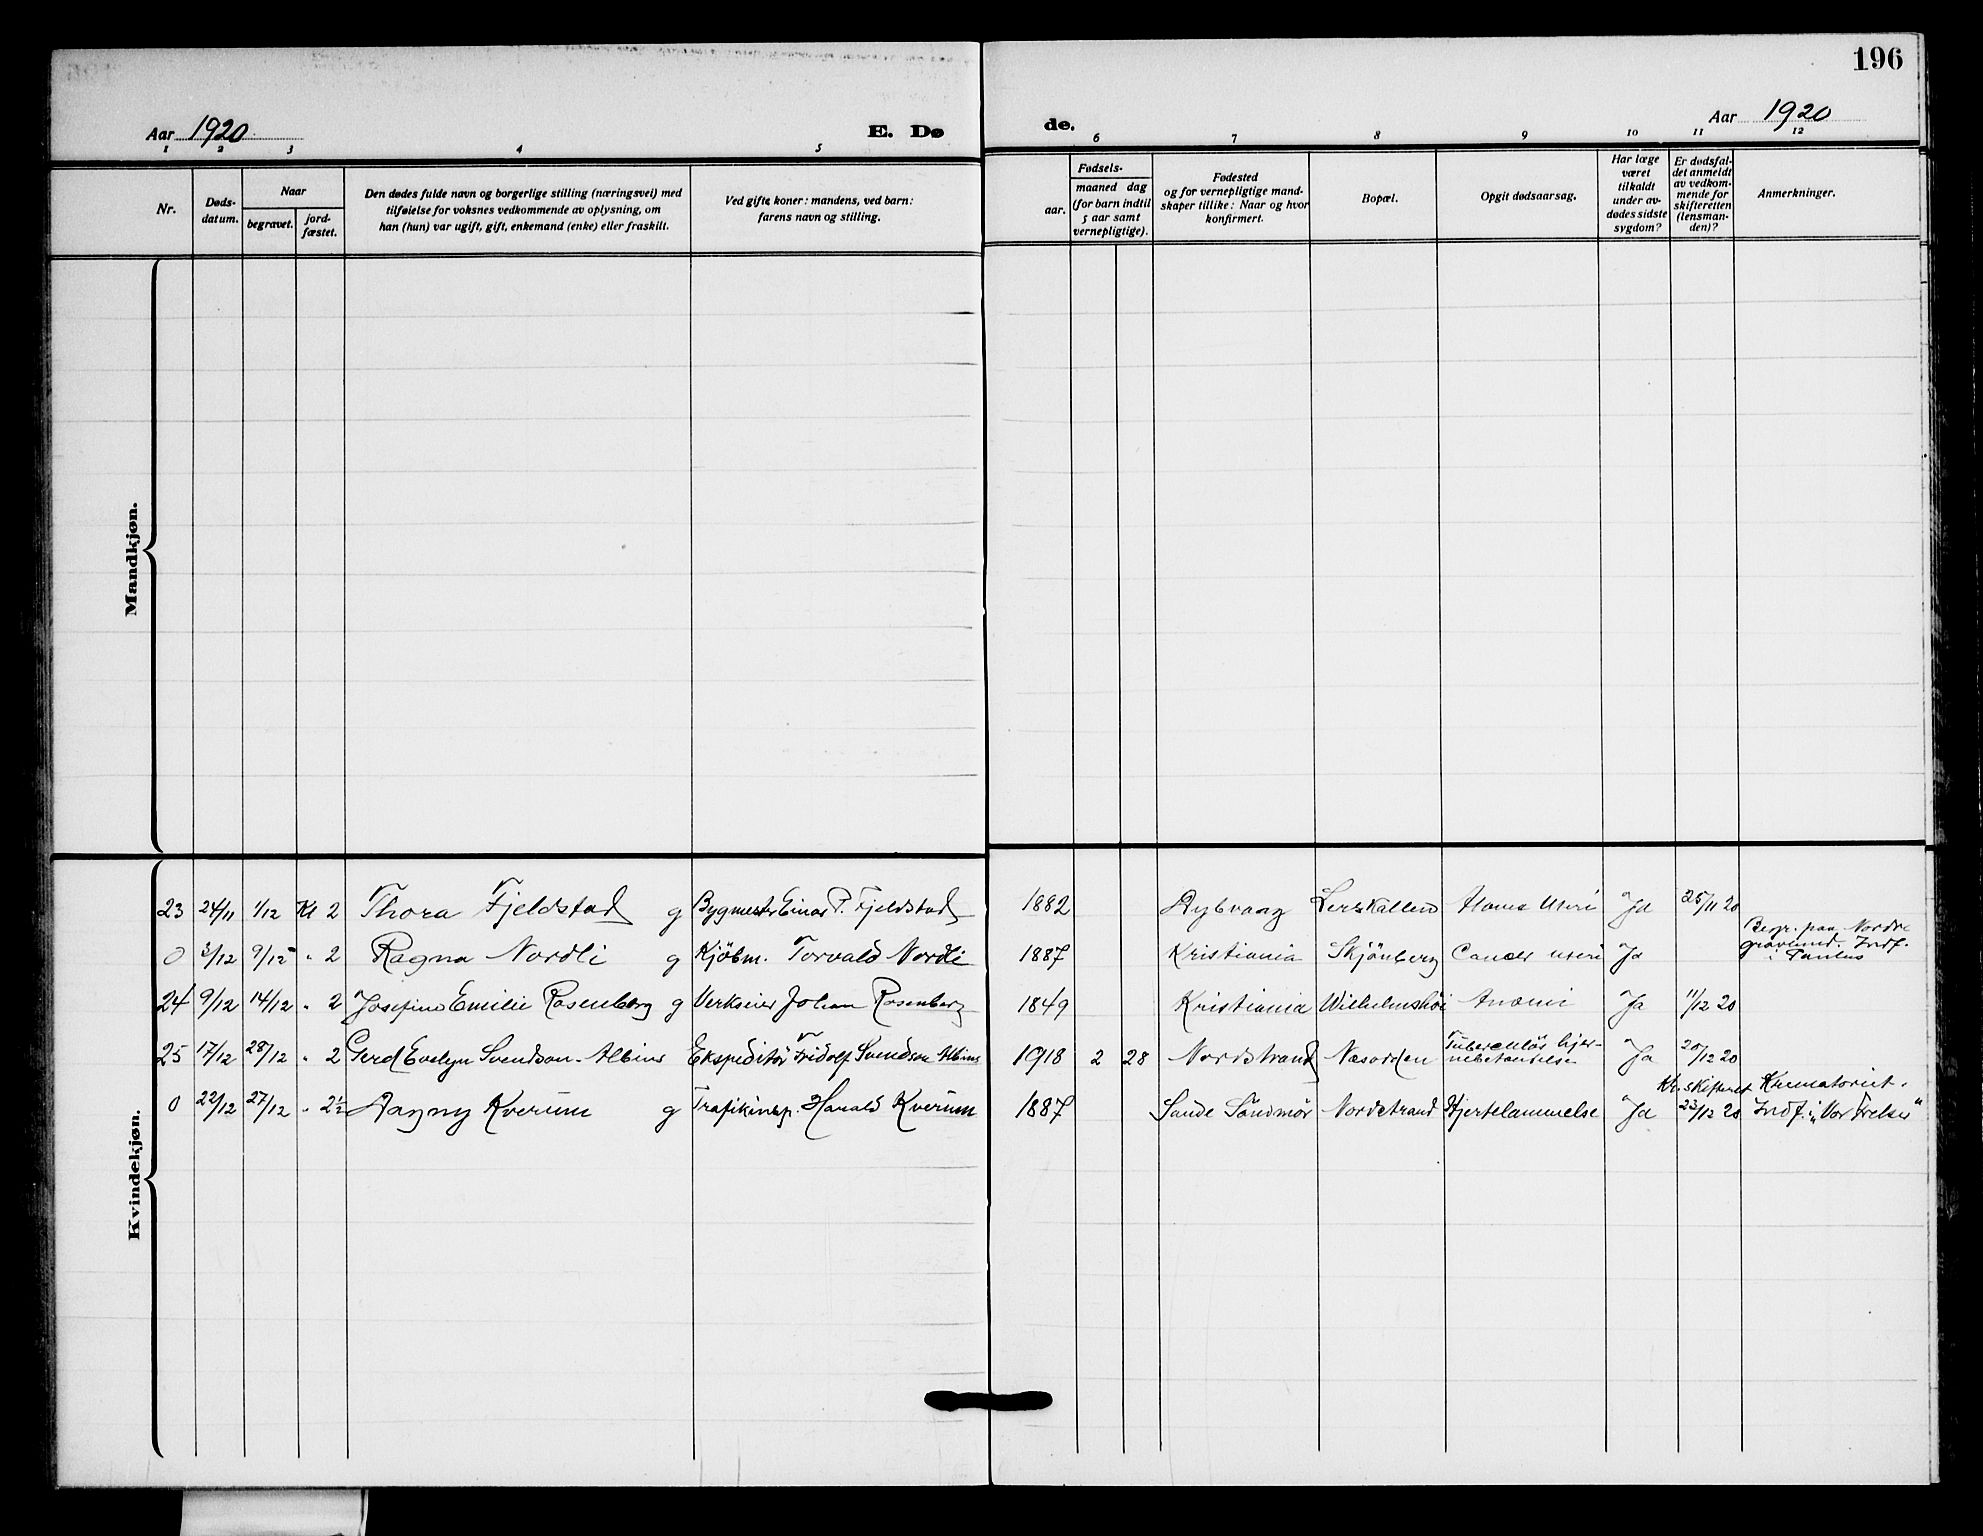 196
Aar 1920
E. Dø
de.
Aar 1920
1 2 3 4 5 6 7 8 9 10 11 12
Nr.
Døds-
datum.
Naar
begravet.
jord-
fæstet.
Den dødes fulde navn og borgerlige stilling (næringsvei) med
tilføielse for voksnes vedkommende av oplysning, om
han (hun) var ugift, gift, enkemand (enke) eller fraskilt.
Ved gifte koner: mandens, ved barn:
farens navn og stilling.
Fødsels-
aar.
maaned dag
(for barn indtil
5 aar samt
vernepligtige).
Fødested
og for vernepligtige mand-
skaper tillike: Naar og hvor
konfirmert.
Bopæl.
Opgit dødsaarsag.
Har læge
været
tilkaldt
under av-
dødes sidste
sygdom?
Er dødsfal-
det anmeldt
av vedkom-
mende for
skifteretten
(lensman-
den)?
Anmerkninger.
Mandkjøn.
Kvindekjøn.
23 24/11 1/12 Kl 2 Thora Fjeldstad g Bygmestr Einar P. Fjeldstad 1882 Dybvaag Lerskallen Uteri Ja 25/11 20
0 3/12 9/12 " 2 Ragna Nordli g Kjöbm. Torvald Nordli 1887 Kristiania Skjönberg Cancer uteri Ja
Begr. paa Nordre
gravlund. Indf.
i Paulus
24 9/12 14/12 " 2 Josefine Emilie Rosenborg g Verkseier Johan Rosenborg 1849 Kristiania Wilhelmshöi Anæmi Ja 11/12 20
25 17/12 28/12 " 2 Gerd Evelyn Svendson-Albins Ekspeditör Fridolf Svendson Albins 1918 2 28 Nordstrand Næsodden Tuberculös hjer-
nebetændelse Ja 20/12 20
0 22/12 27/12 " 2½ Dagny Kverum g Trafikinsp. Harald Kverum 1887 Sande Söndmör Nordstrand Hjertelammelse Ja Kr. skifteret
23/12 20
Krematoriet.
Indf. i "Vor Frelser"